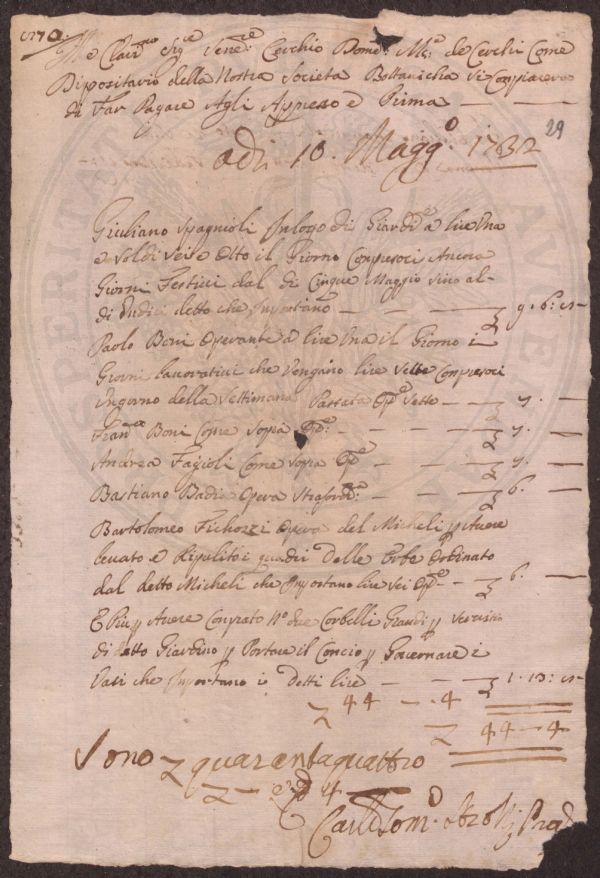 Cerchio Dome: M: de Cerchi Come
Dipositario della Nostra Societa Bottanicha si Compiacerano
di Far Pagare Agli Appresso e Prima
29
Adi 10. Magg:o 1732
Giuliano Spagnioli In logo di Giard:e a lire Una
e Soldi Sei e Otto il Giorno Compresoci Ancora
Giorni Festivi dal di Cinque Maggio sino al
di Undici detto che Inportano 9. 6:
Paolo Boni Operante a lire Una il Giorno i
Giorni lavorativi che Vengano lire Sette Compresoci
Un gorno della Settimana Passata Sette 7.
Fran:co Boni Come Sopra 7.
Andrea Fagioli Come Sopra 7.
Bastiano Badii Opera 6.
Bartolomeo Opera del Micheli p Avere
levato e Ripulito i quadri delle Erbe Ordinato
dal detto Micheli che Inportano lire Sei 6.
E Piu p Avere Conprato N:o due Corbelli Grandi p Servizio
di detto Giardino p Portare il Concio p Governare i
Vasi che Inportano i detti lire 1. 13:
44 - . 4
44 - 4
Sono quarantaquattro
4